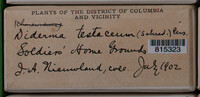 PLANTS OF THE DISTRICT OF COLUMBIA
AND VICINITY
Diderma testaceum (Schrad.) Pers.
Soldiers' Home Grounds
815323
J. A. Nieuwland, coll. July 1902